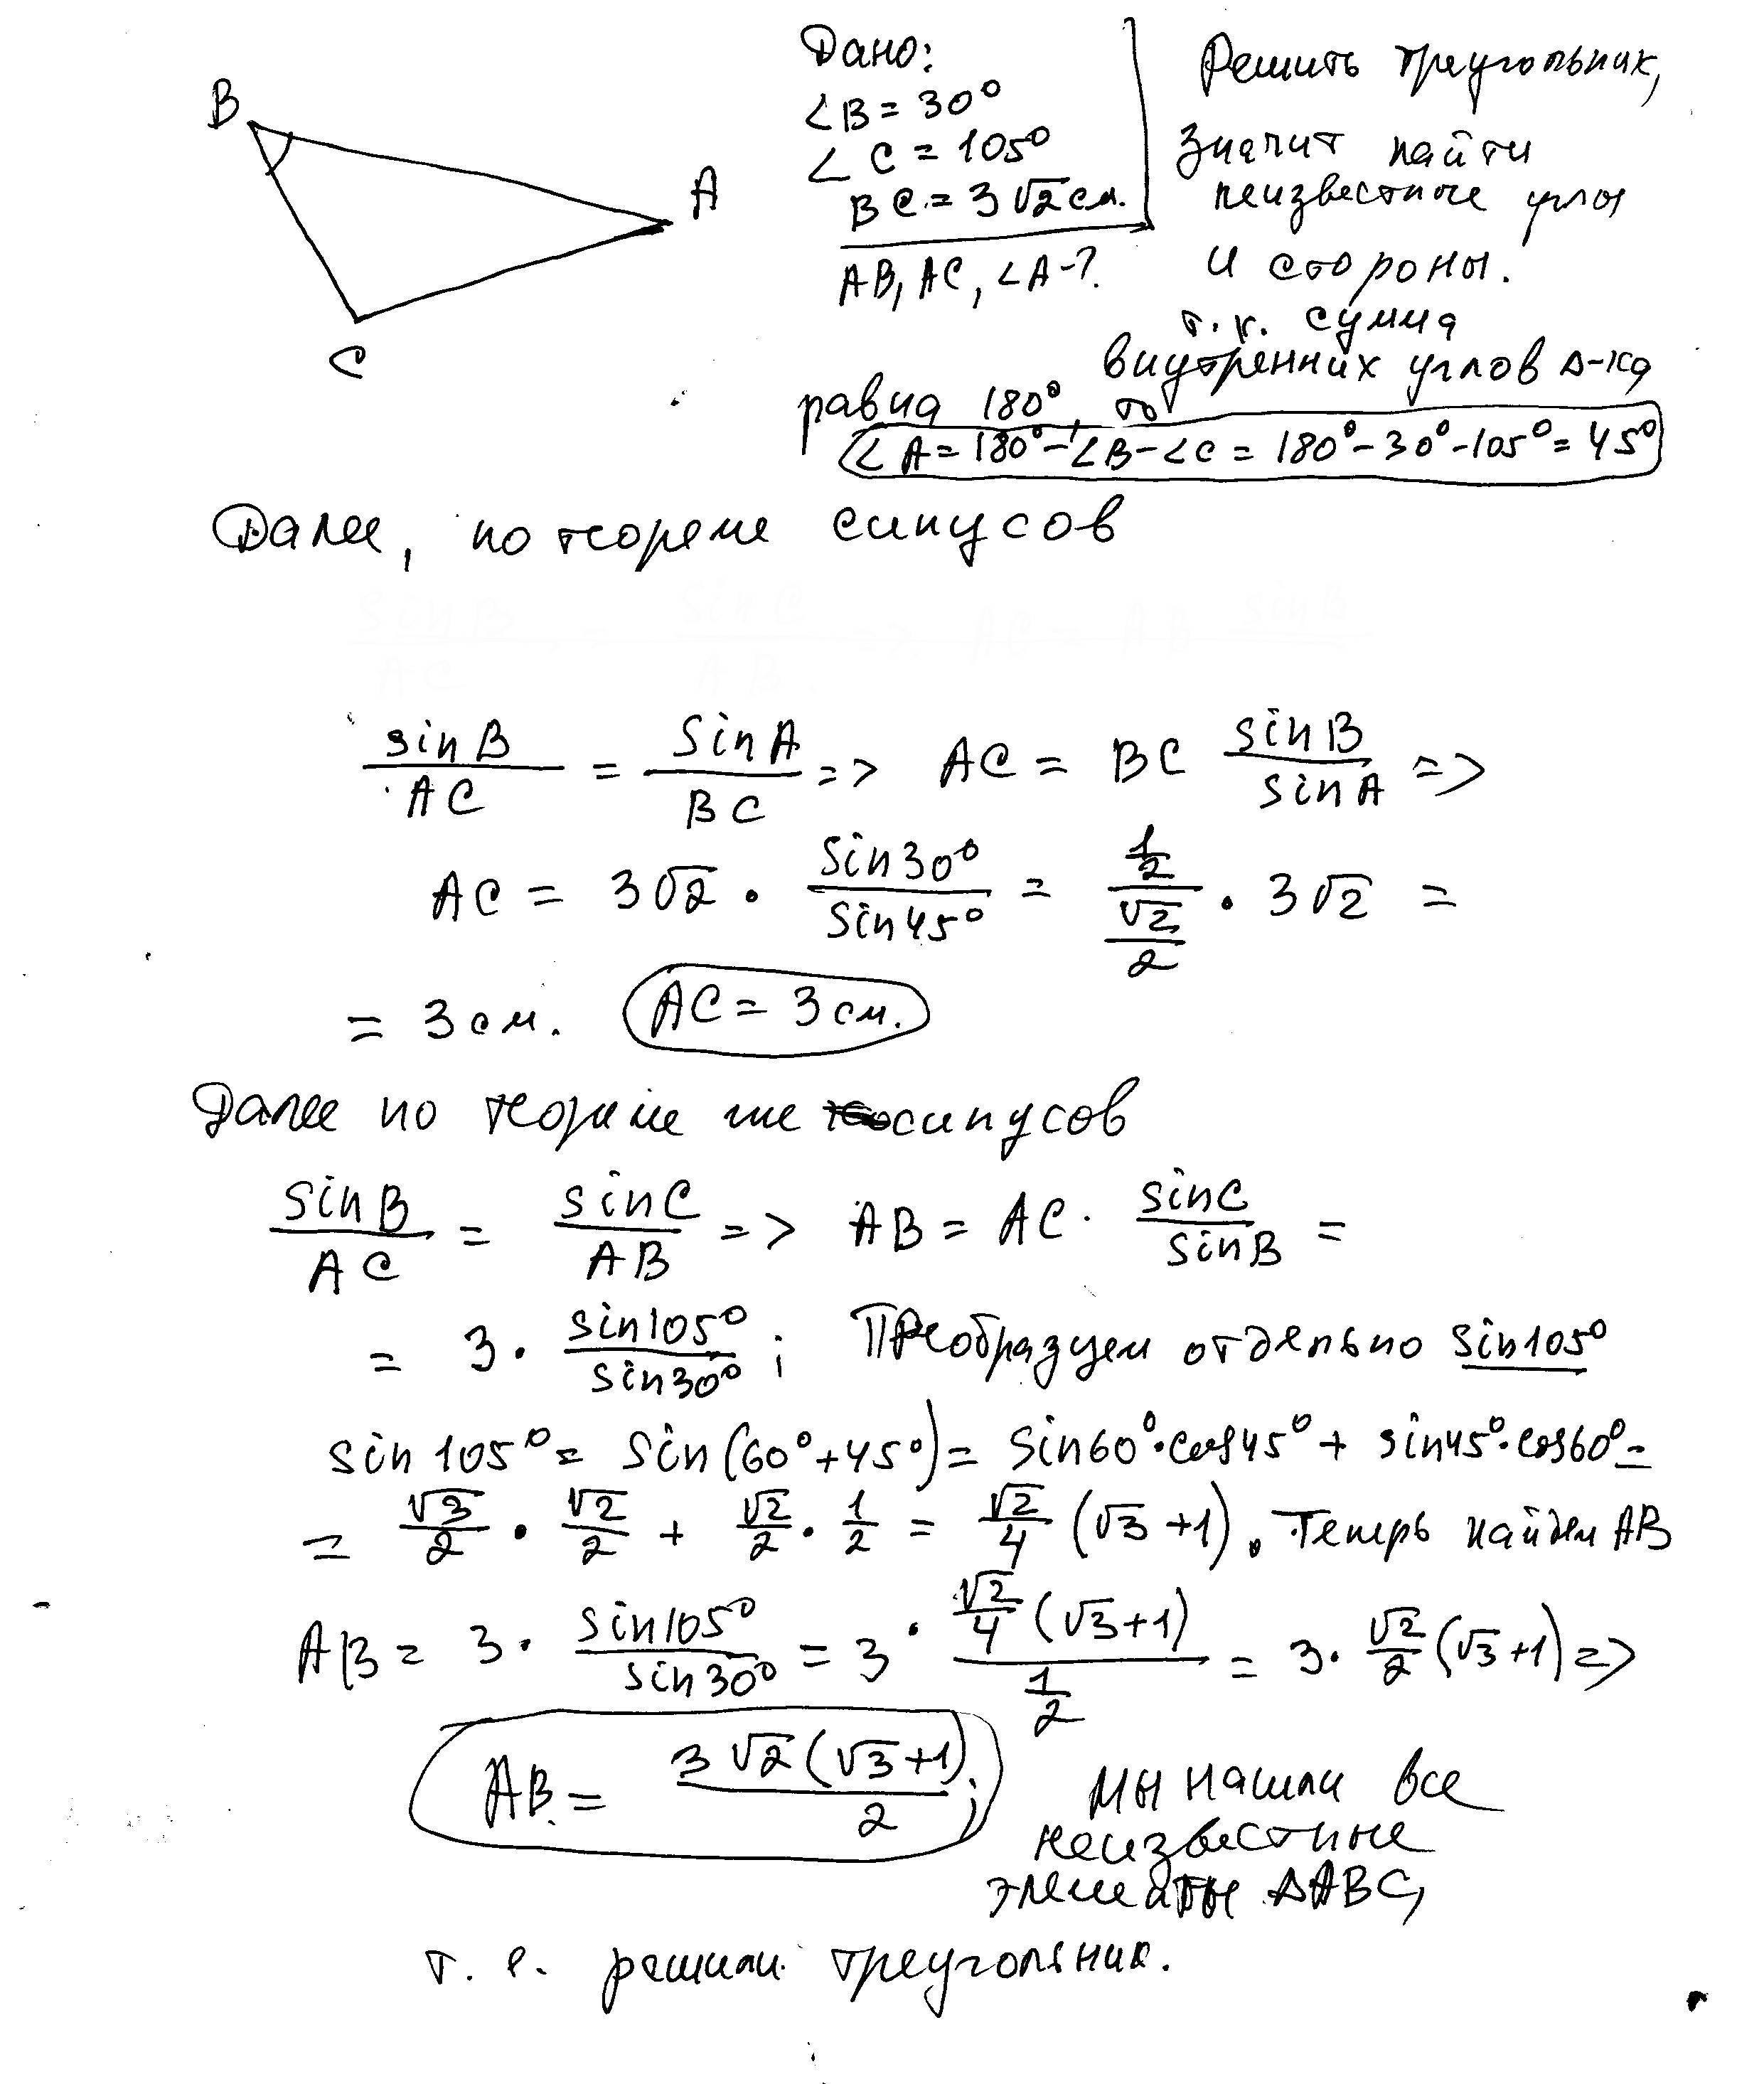 B
A
C
Дано:
∠B = 30°
∠C = 105°
BC = 3√2 см.
AB, AC, ∠A - ?
Решить треугольник,
значит найти
неизвестные углы
и стороны.
т.к. сумма
внутренних углов Δ-ка
равна 180°, то
∠A = 180° - ∠B - ∠C = 180° - 30° - 105° = 45°
Далее, по теореме синусов
sinB/AC = sinA/BC => AC = BC sinB/sinA =>
AC = 3√2 · sin30°/sin45° = (1/2)/(√2/2) · 3√2 =
= 3 см. AC = 3 см.
Далее по теореме же синусов
sinB/AC = sinC/AB => AB = AC · sinC/sinB =
= 3 · sin105°/sin30° ; Преобразуем отдельно sin105°
sin105° = sin(60° + 45°) = sin60° · cos45° + sin45° · cos60° =
= √3/2 · √2/2 + √2/2 · 1/2 = √2/4 (√3 + 1). Теперь найдем AB
AB = 3 · sin105°/sin30° = 3 · (√2/4 (√3 + 1))/(1/2) = 3 · √2/2 (√3 + 1) =>
AB = 3√2(√3 + 1)/2 ;
Мы нашли все
неизвестные
элементы ΔABC,
т. е. решили треугольник.